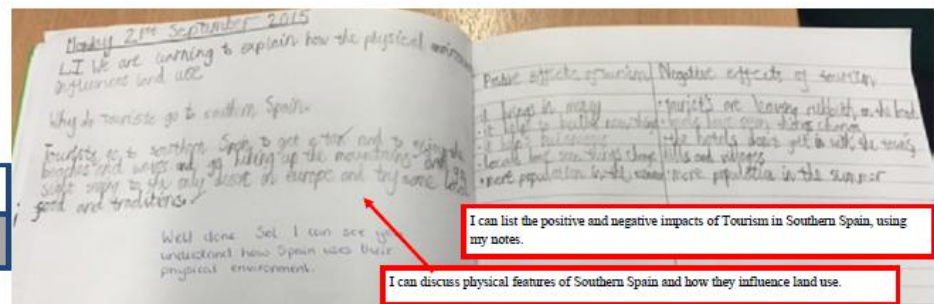 Monday 21st September 2015
L.I We are learning to explain how the physical
influences land use
Why do Tourists go to southern Spain.
Tourists go to southern Spain to get a tan and to enjoy the
beaches and waves and go hiking up the mountains and go
sight seeing to the only desert in europe and try some local
food and traditions.
Well done Sol. I can see you
understand how Spain uses their
physical environment.
Positive effects of tourism Negative effects of tourism
• it brings in money
• it helps to
• it helps
• locals have seen things change
• more population in the
• tourists are leaving rubbish on the land
• locals have seen things change
• the hotels don't fit in with the
hills and villages
• more population in the summer
I can list the positive and negative impacts of Tourism in Southern Spain, using
my notes.
I can discuss physical features of Southern Spain and how they influence land use.